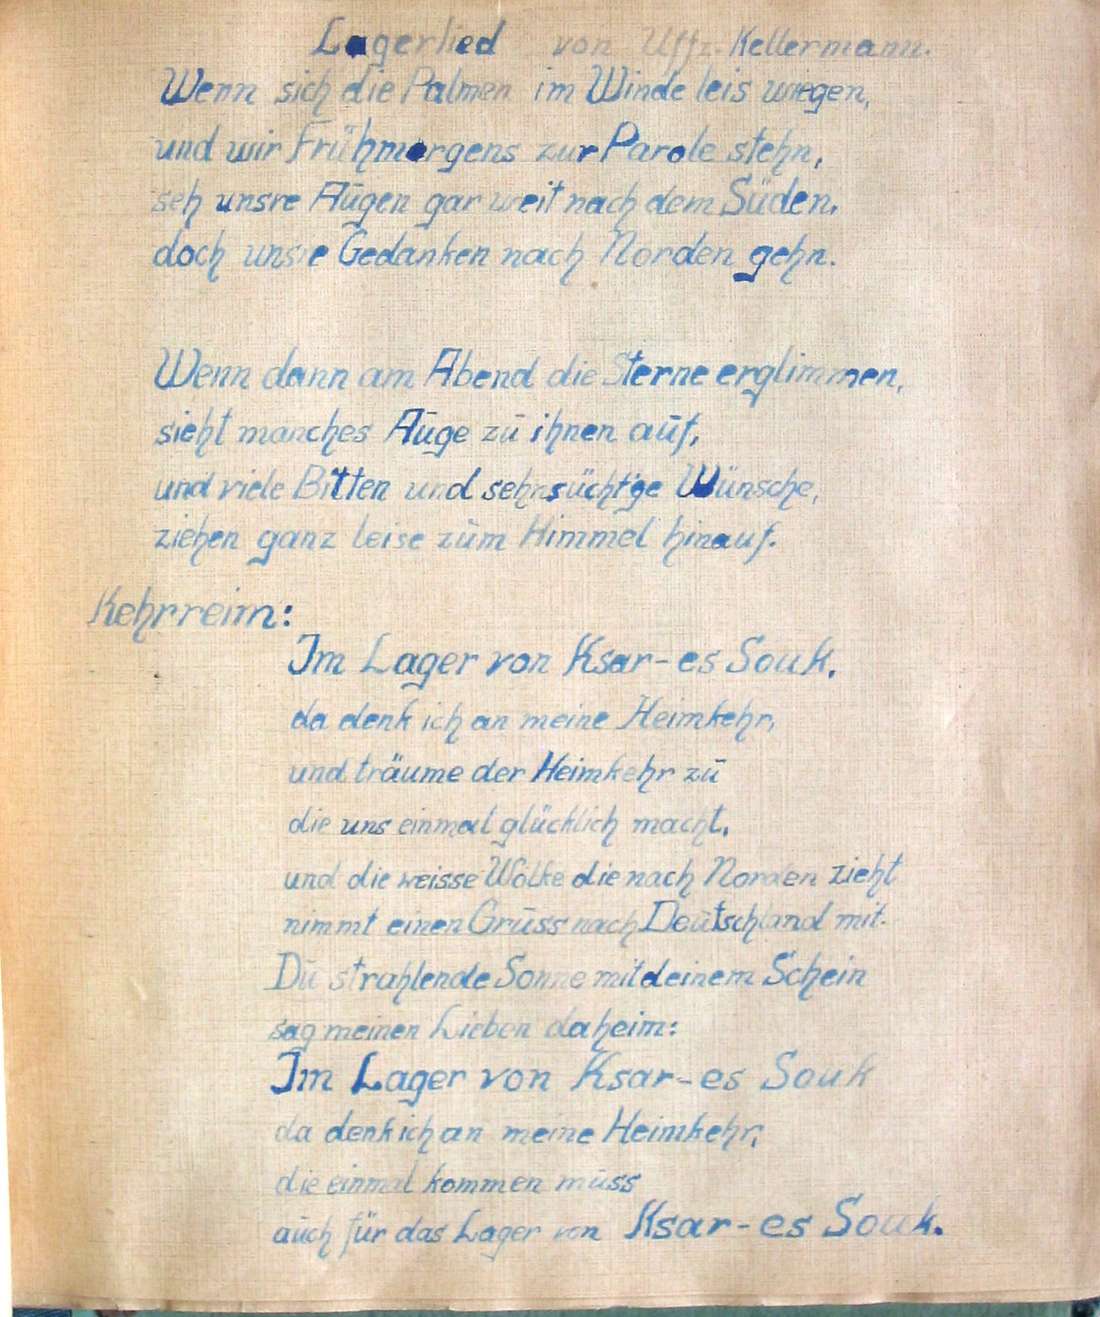 Lagerlied von Uffz. Kellermann.
Wenn sich die Palmen im Winde leis wiegen,
und wir Frühmorgens zur Parole stehn,
seh unsre Augen gar weit nach dem Süden,
doch unsre Gedanken nach Norden gehn.
Wenn dann am Abend die Sterne erglimmen,
sieht manches Auge zu ihnen auf,
und viele Bitten und sehnsücht'ge Wünsche,
ziehen ganz leise zum Himmel hinauf.
Kehrreim:
Im Lager von Ksar-es Souk,
da denk ich an meine Heimkehr,
und träume der Heimkehr zu
die uns einmal glücklich macht,
und die weisse Wolke die nach Norden zieht
nimmt einen Gruss nach Deutschland mit.
Du strahlende Sonne mit deinem Schein
sag meinen Lieben daheim:
Im Lager von Ksar-es Souk
da denk ich an meine Heimkehr,
die einmal kommen muss
auch für das Lager von Ksar-es Souk.